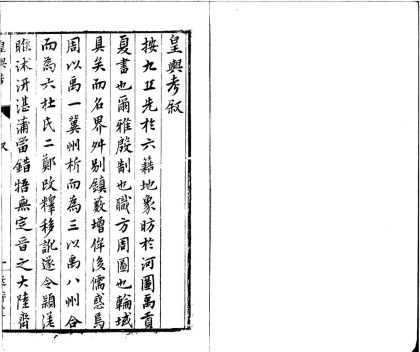 皇輿考叙
按九丘先於六籍地象昉於河圖禹貢
夏書也爾雅殷制也職方周圖也輪域
具矣而名界舛别鎮藪增侔後儒惑焉
周以禹一冀州析而為三以禹八州合
而為六杜氏二鄭改釋移訛遂令潁湛
睢沭浸湛蒲當錯牾無定音之大陸齊
皇輿考
叙
一